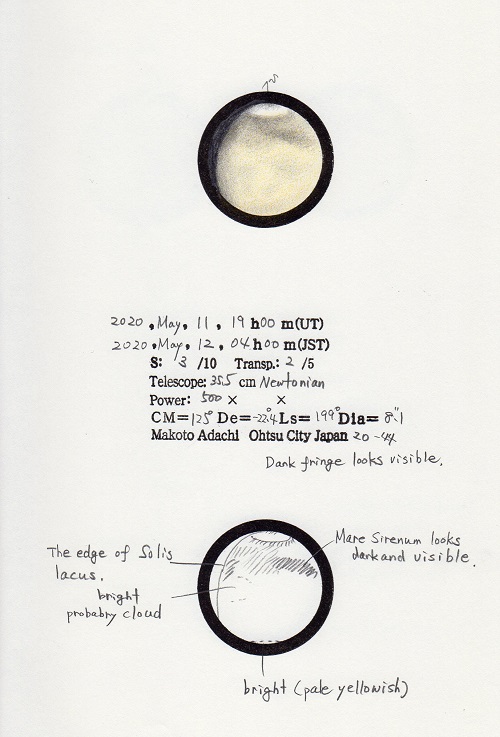 2020, May, 11, 19 h00 m(UT)
2020, May, 12, 04 h00 m(JST)
S: 3 /10 Transp.: 2 /5
Telescope: 35.5 cm Newtonian
Power: 500 × ×
CM=125° De=-22.4° Ls=199° Dia=8.1"
Makoto Adachi Ohtsu City Japan 20-44
Dark fringe looks visible.
The edge of Solis
lacus.
bright
probabry cloud
Mare Sirenum looks
dark and visible.
bright (pale yellowish)